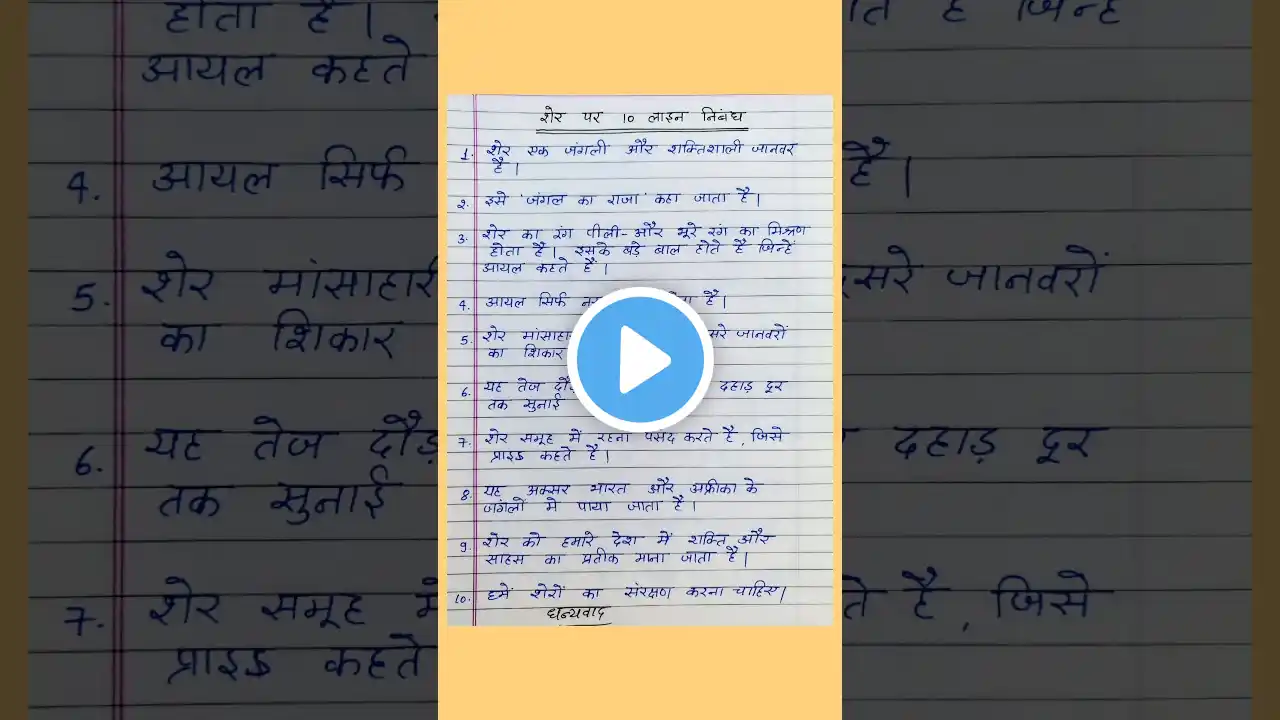 होता है।
आयल कहते
4. आयल सिर्फ
5. शेर मांसाहारी
का शिकार
6. यह तेज दौड़
तक सुनाई
7. शेर समूह में
प्राइड कहते
शेर पर 10 लाइन निबंध
1. शेर एक जंगली और शक्तिशाली जानवर
है।
2. इसे 'जंगल का राजा' कहा जाता है।
3. शेर का रंग पीली-और भूरे रंग का मिश्रण
होता है। इसके बड़े बाल होते है जिन्हें
आयल कहते है।
4. आयल सिर्फ है।
5. शेर जानवरों
का शिकार
6. यह तेज दहाड़ दूर
तक सुनाई
7. शेर समूह में रहना पसंद करते है, जिसे
प्राइड कहते है।
8. यह अक्सर भारत और अफ्रीका के
जंगलों में पाया जाता है।
9. शेर को हमारे देश में शक्ति और
साहस का प्रतीक माना जाता है।
10. हमें शेरों का संरक्षण करना चाहिए।
धन्यवाद
है जिन्हें
है।
जानवरों
दहाड़ दूर
है, जिसे